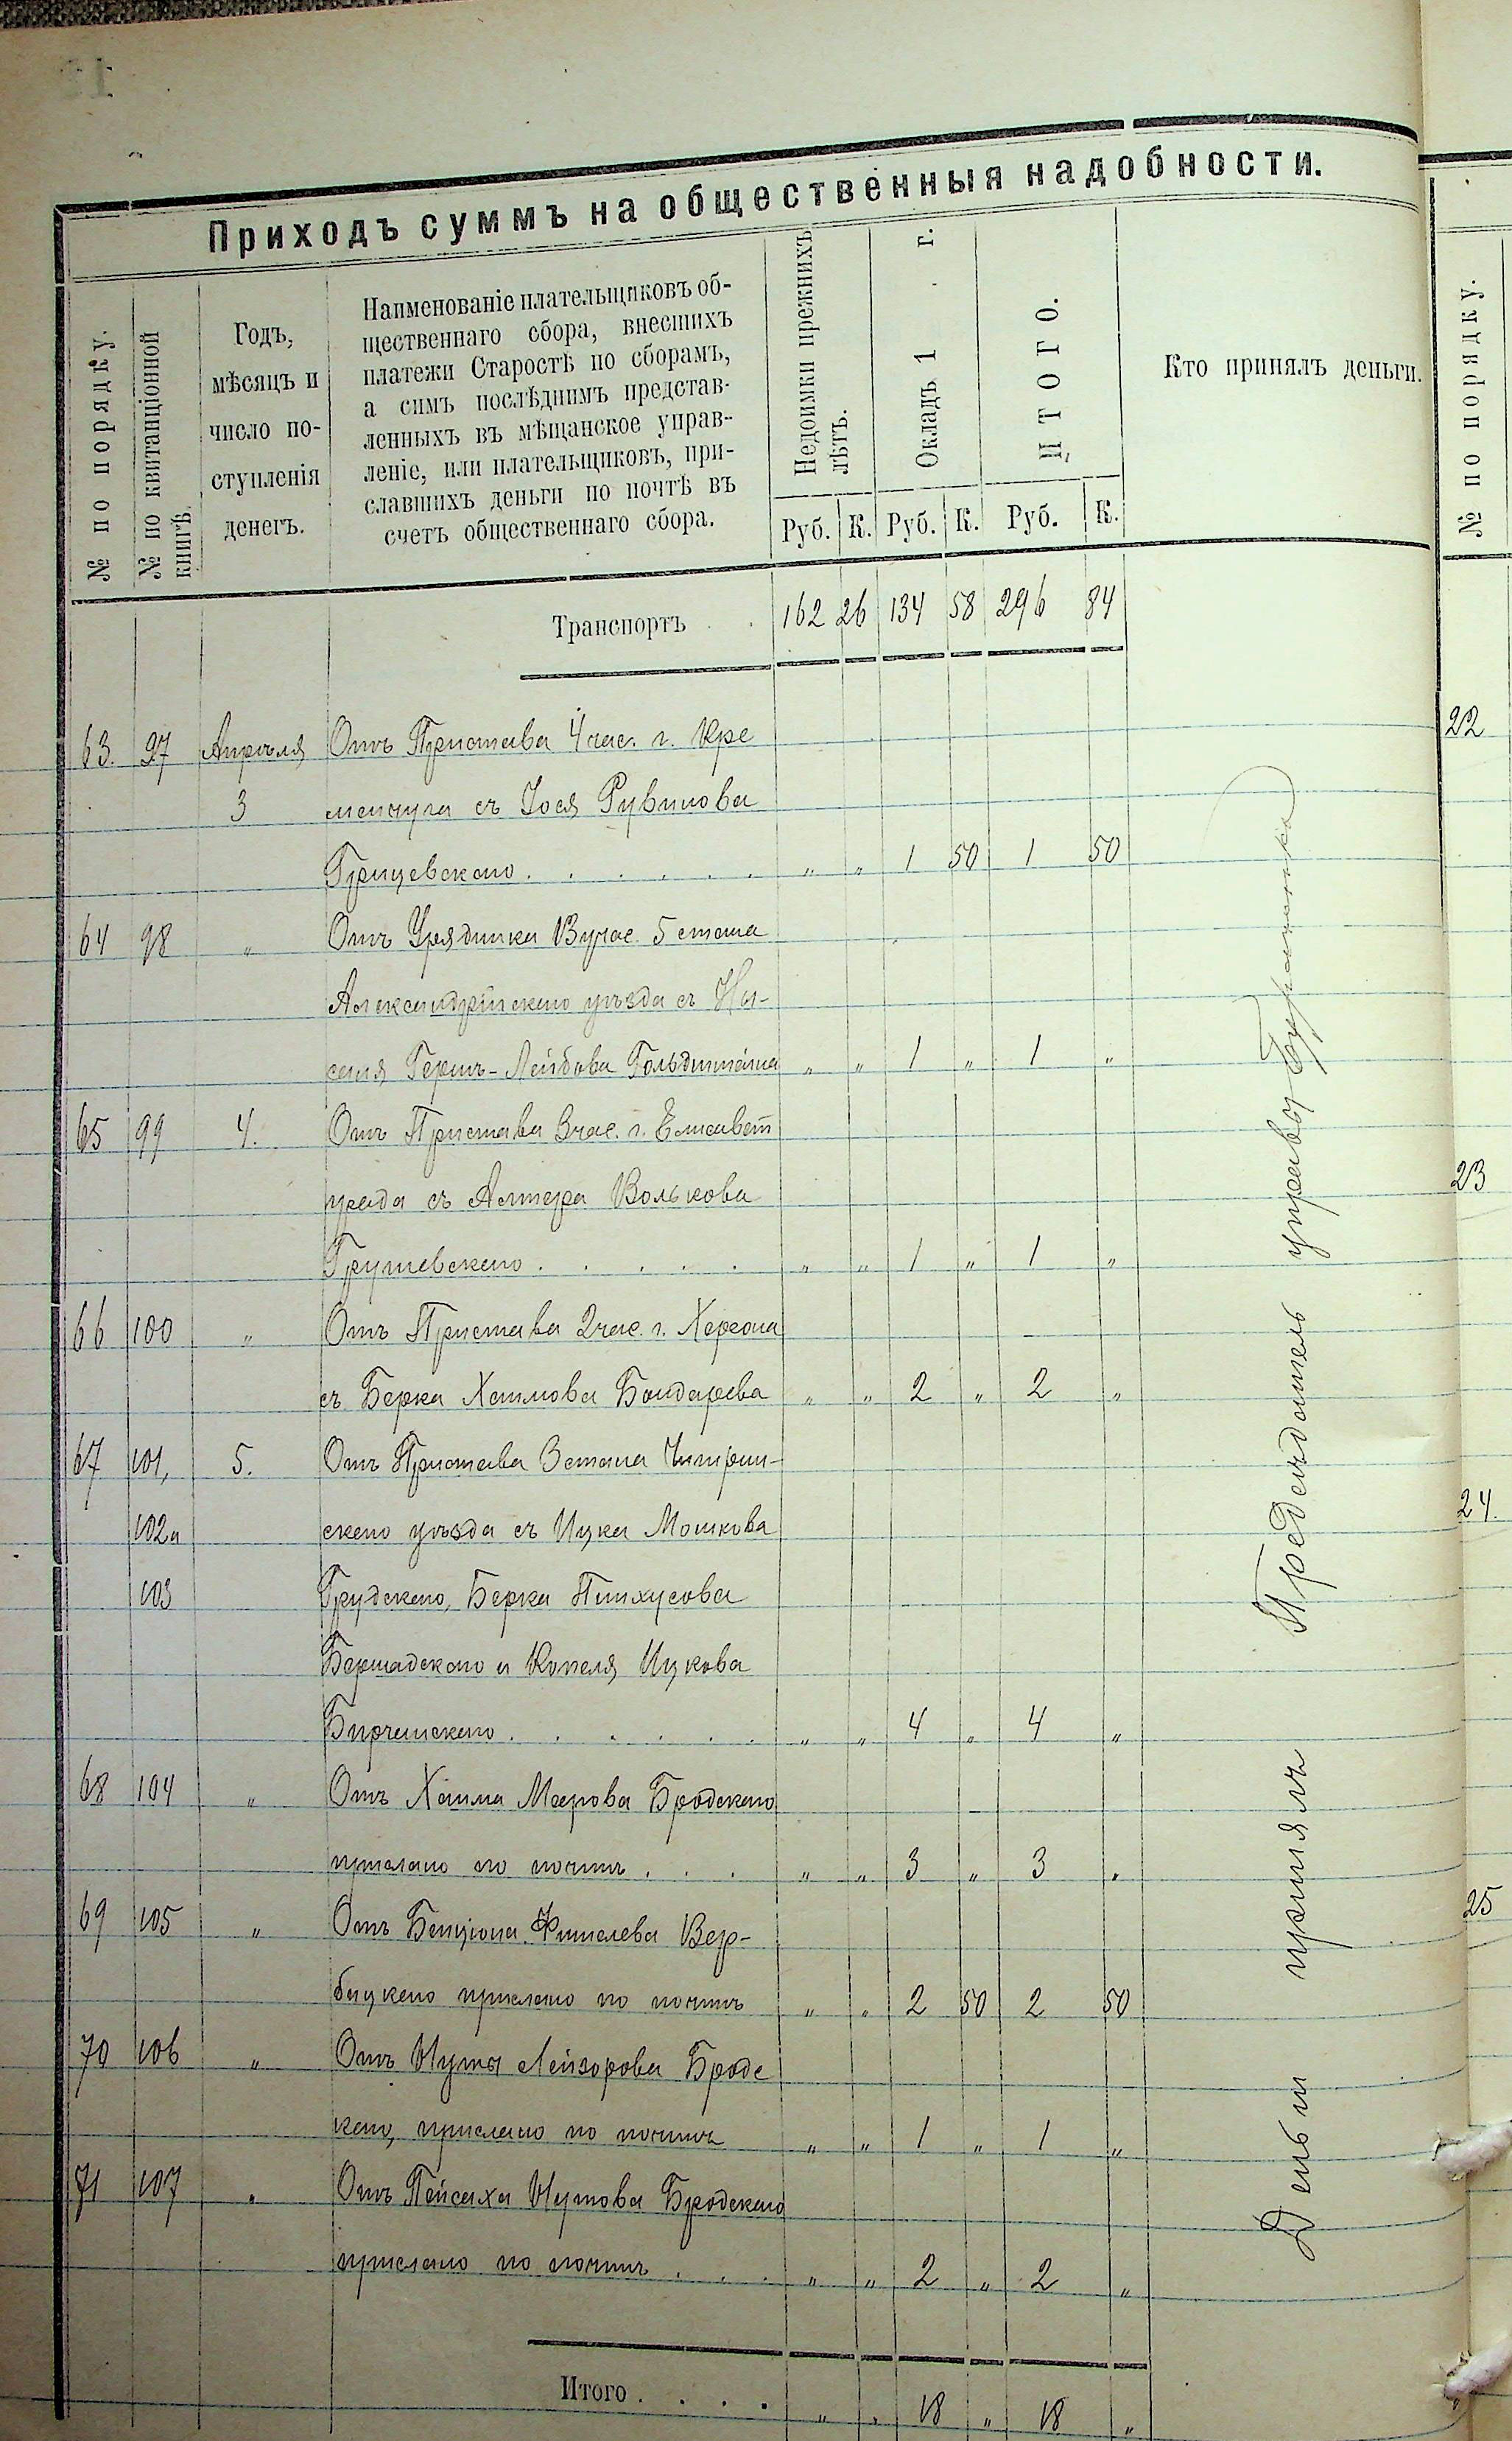 Приходъ суммъ на общественныя надобности.
№ по порядку.
№ по квитанціонной книгѣ.
Годъ, мѣсяцъ и число поступленія денегъ.
Наименованіе плательщиковъ об-
щественнаго сбора, внесшихъ
платежи Старостѣ по сборамъ,
а симъ послѣднимъ представ-
ленныхъ въ мѣщанское управ-
леніе, или плательщиковъ, при-
славшихъ деньги по почтѣ въ
счетъ общественнаго сбора.
Недоимки прежнихъ лѣтъ.
Окладъ 1 г.
ИТОГО.
Кто принялъ деньги.
Руб. К. Руб. К. Руб. К.
Транспортъ . . 162 26 134 58 296 84
63. 97 Апрѣля Отъ Пристава 4 час. г. Кре
3 менчуга съ Іося Рувинова
Грицевского . . . . . . " " 1 50 1 50
64 98 " Отъ Урядника Вучас. 5 стана
Александрійского уѣзда съ Ну-
Гершъ-Лейбова " " 1 " 1 "
65 99 4. Отъ Пристава 3 час. г. Елисавет
града съ Алтера Волькова
Грушевского . . . . . " " 1 " 1 "
66 100 " Отъ Пристава 2 час. г. Херсона
съ Берка Хаимова Бондарева " " 2 " 2 "
67 101, 5. Отъ Пристава 3 стана Чигрин-
102 и ского уѣзда съ Ицка Мошкова
103 Грудского, Берка Пинхусова
Бершадского и Копеля Ицкова
. . . . . . " " 4 " 4 "
68 104 " Отъ Хаима Меерова Бродского
прислано по почтѣ . . . " " 3 " 3 "
69 105 " Отъ Бенціона Фишелева Вер-
бицкого прислано по почтѣ " " 2 50 2 50
70 106 " Отъ Нуты Лейзорова Бродс
кого, прислано по почтѣ " " 1 " 1 "
71 107 " Отъ Пейсаха Нутова Бродского
прислано по почтѣ . . . " " 2 " 2 "
Итого . . . . " " 18 " 18 "
Деньги принялъ Предсѣдатель управы
№ по порядку.
22
23
24.
25